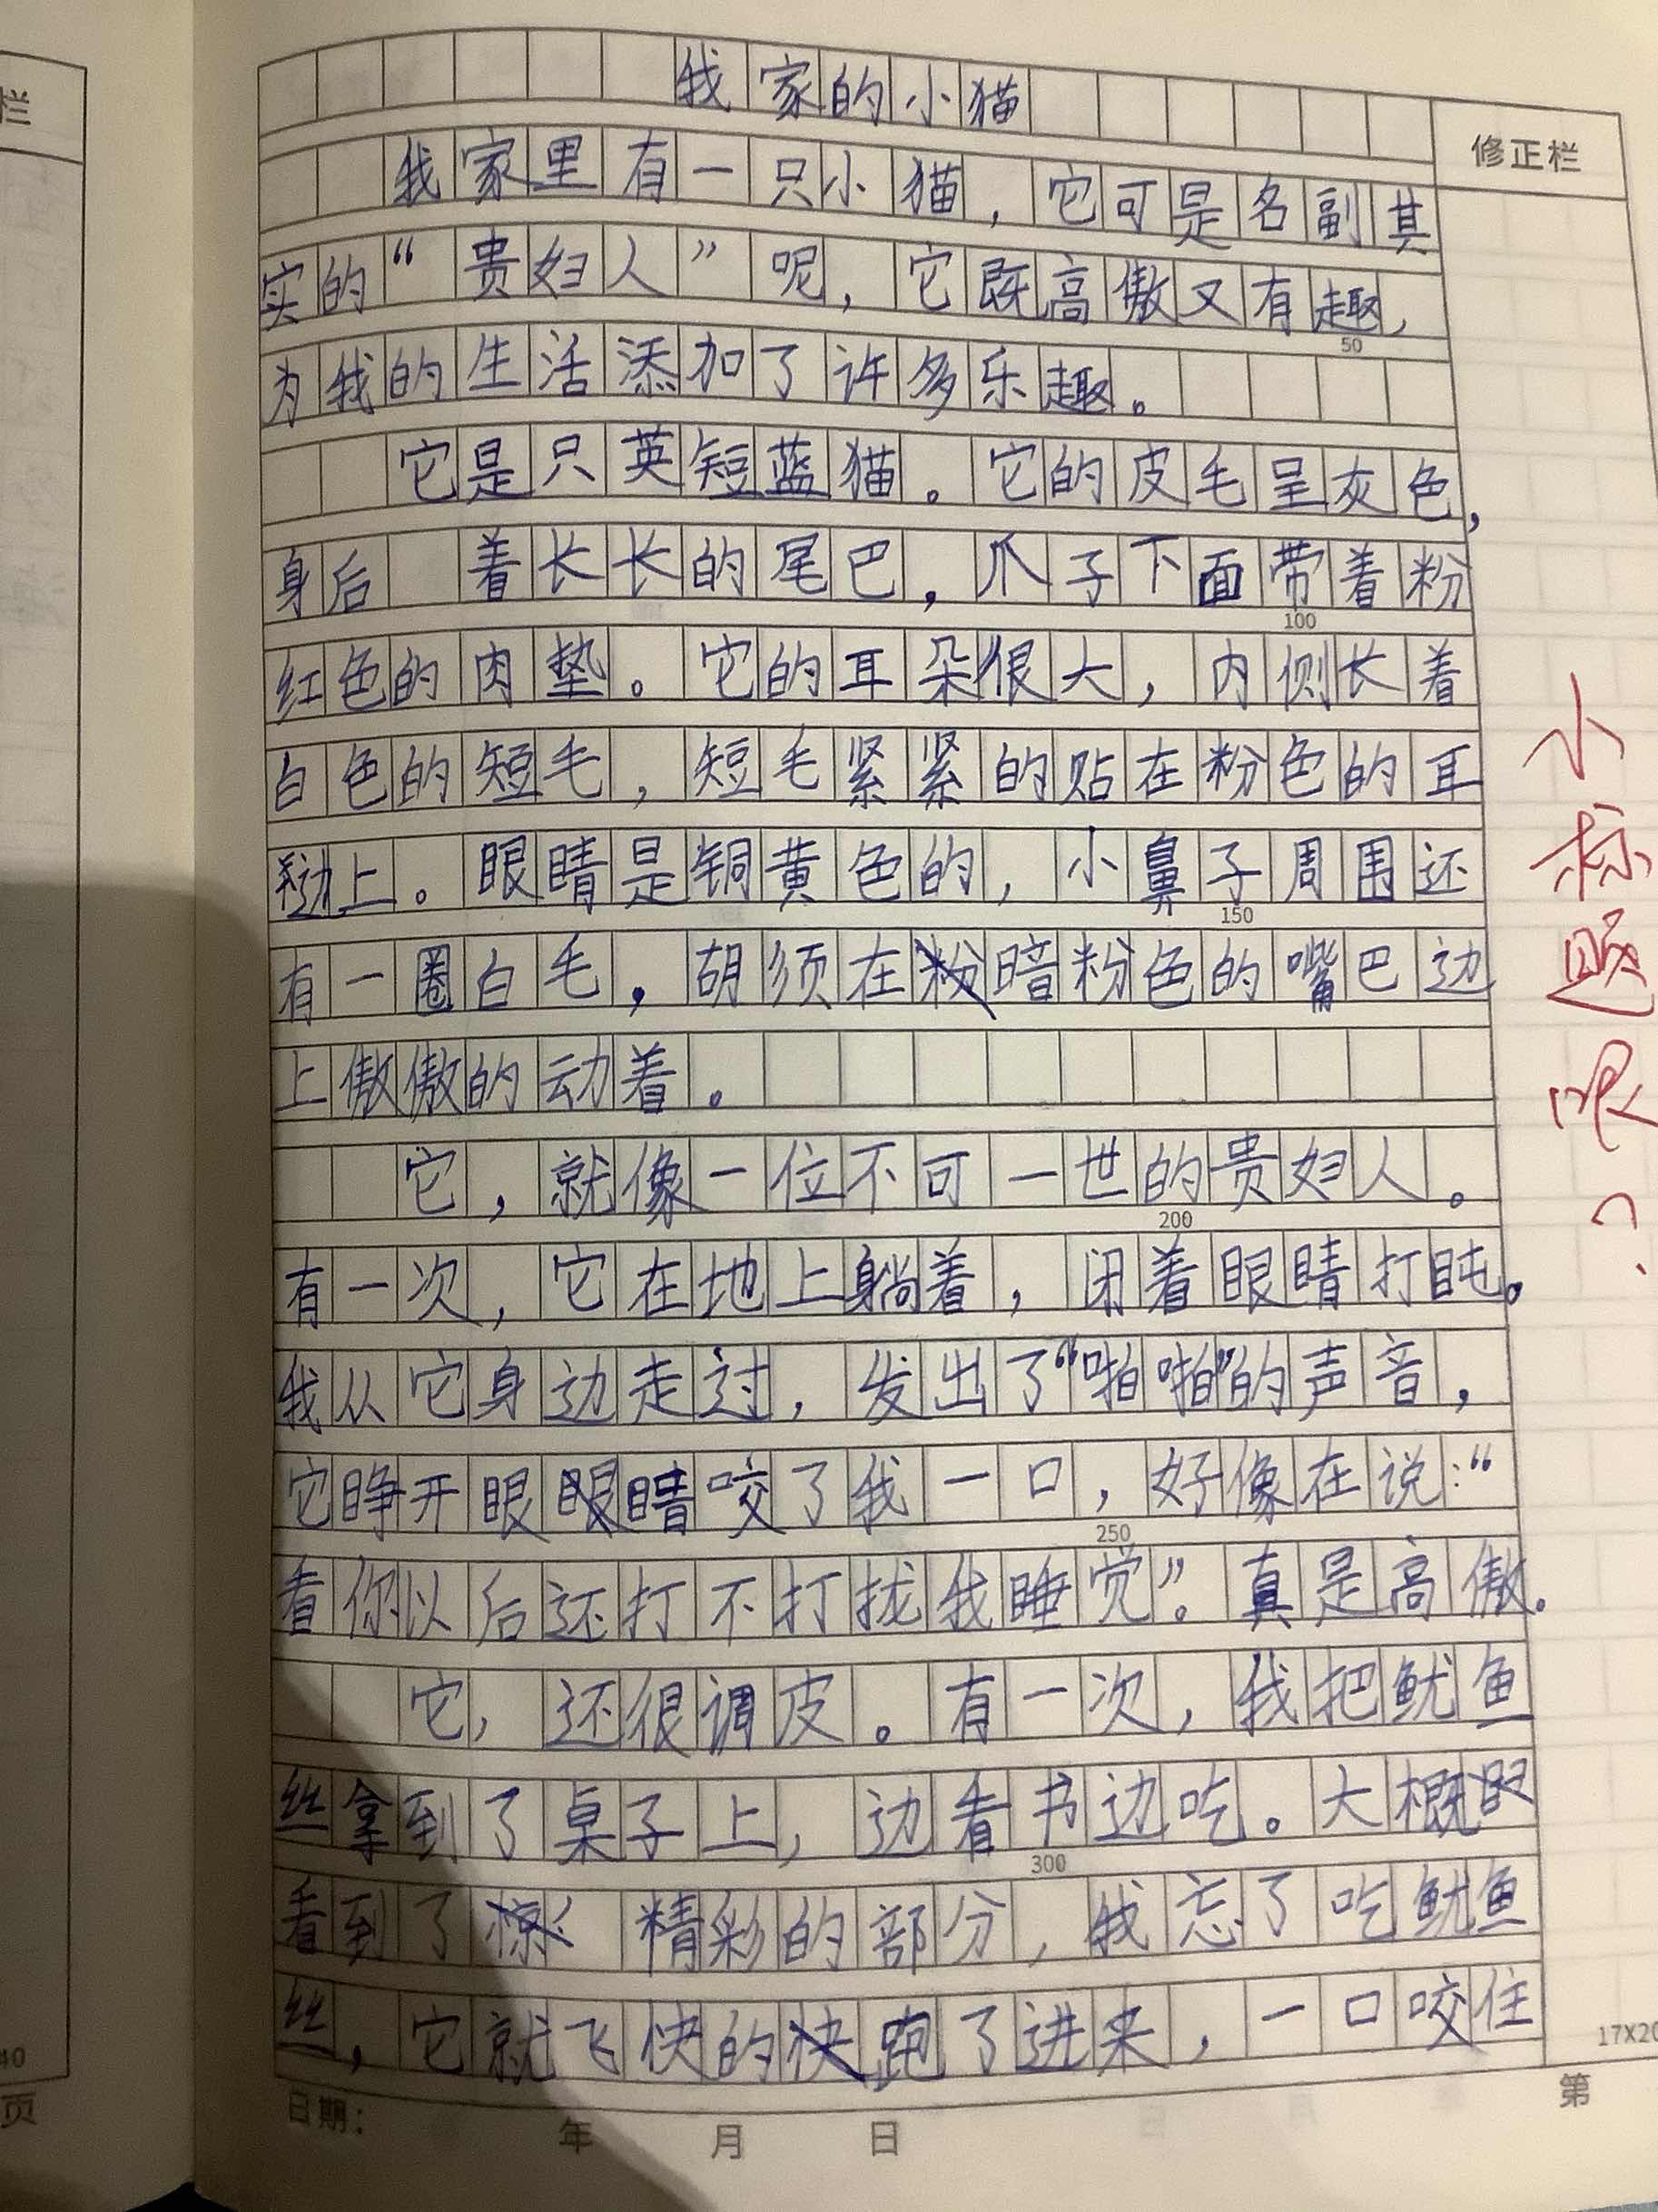 栏
我家的小猫
修正栏
我家里有一只小猫，它可是名副其
实的“贵妇人”呢，它既高傲又有趣，
50
为我的生活添加了许多乐趣。
它是只英短蓝猫。它的皮毛呈灰色，
身后 着长长的尾巴，爪子下面带着粉
100
红色的肉垫。它的耳朵很大，内侧长着
白色的短毛，短毛紧紧的贴在粉色的耳
上。眼睛是铜黄色的，小鼻子周围还
150
有一圈白毛，胡须在暗粉色的嘴巴边
上傲傲的动着。
它，就像一位不可一世的贵妇人。
200
有一次，它在地上躺着，闭着眼睛打盹。
我从它身边走过，发出了“啪啪”的声音，
它睁开眼睛咬了我一口，好像在说：“
250
看你以后还打不打拢我睡觉”。真是高傲。
它，还很调皮。有一次，我把鱿鱼
丝拿到了桌子上，边看书边吃。大概
300
看到了精彩的部分，我忘了吃鱿鱼
丝，它就飞快的跑了进来，一口咬住
小标题呢？
17X20
40
页
日期： 年 月 日
第